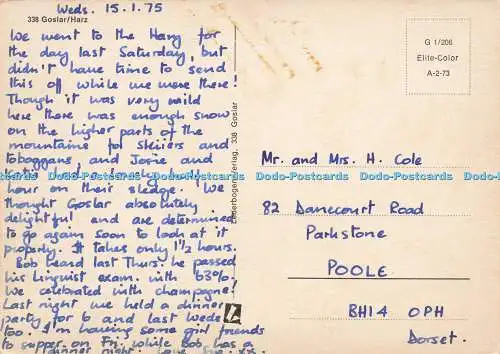 Weds. 15.1.75
338 Goslar/Harz
We went to the Harz for
the day last Saturday, but
didn't have time to send
this off while we were there!
Though it was very mild
here there was enough snow
on the higher parts of the
mountains for skiiers and
toboggans, and Josie and
Katie had a lovely
hour on their sledge. We
thought Goslar absolutely
delightful and are determined
to go again soon to look at it
properly. It takes only 1½ hours.
Bob heard last Thurs. he passed
his linguist exam. with 63%.
We celebrated with champagne!
Last night we held a dinner
party for 6 and last Weds.
too. I'm having some girl friends
to supper on Fri. while Bob has a
dinner night. Love Sue. xx
Verlag, 338 Goslar
G 1/206
Elite-Color
A-2-73
Mr. and Mrs. H. Cole
82 Danecourt Road
Parkstone
POOLE
BH14 0PH
Dorset.
Dodo-Postcards Dodo-Postcards Dodo-Postcards Dodo-Postcards Dodo-Postcards